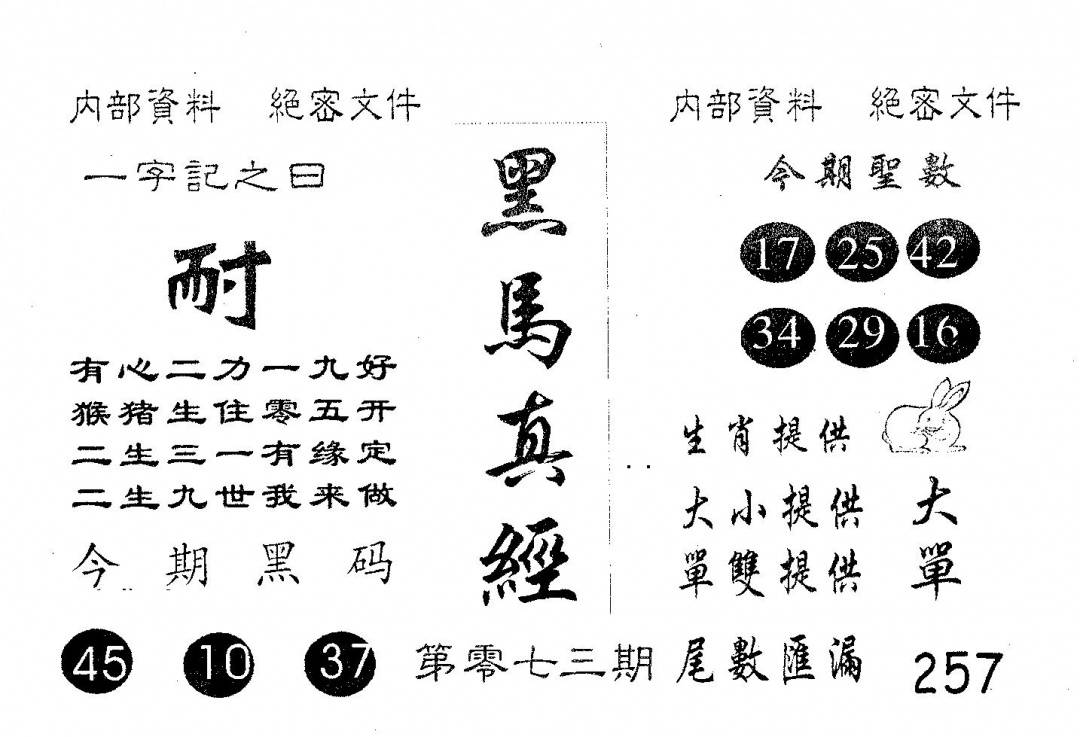 内部資料 絕密文件
一字記之曰
耐
有心二力一九好
猴猪生住零五开
二生三一有缘定
二生九世我来做
今期黑码
45 10 37
黑馬真經
第零七三期
内部資料 絕密文件
今期聖數
17 25 42
34 29 16
生肖提供
大小提供 大
單雙提供 單
尾數匯漏 257